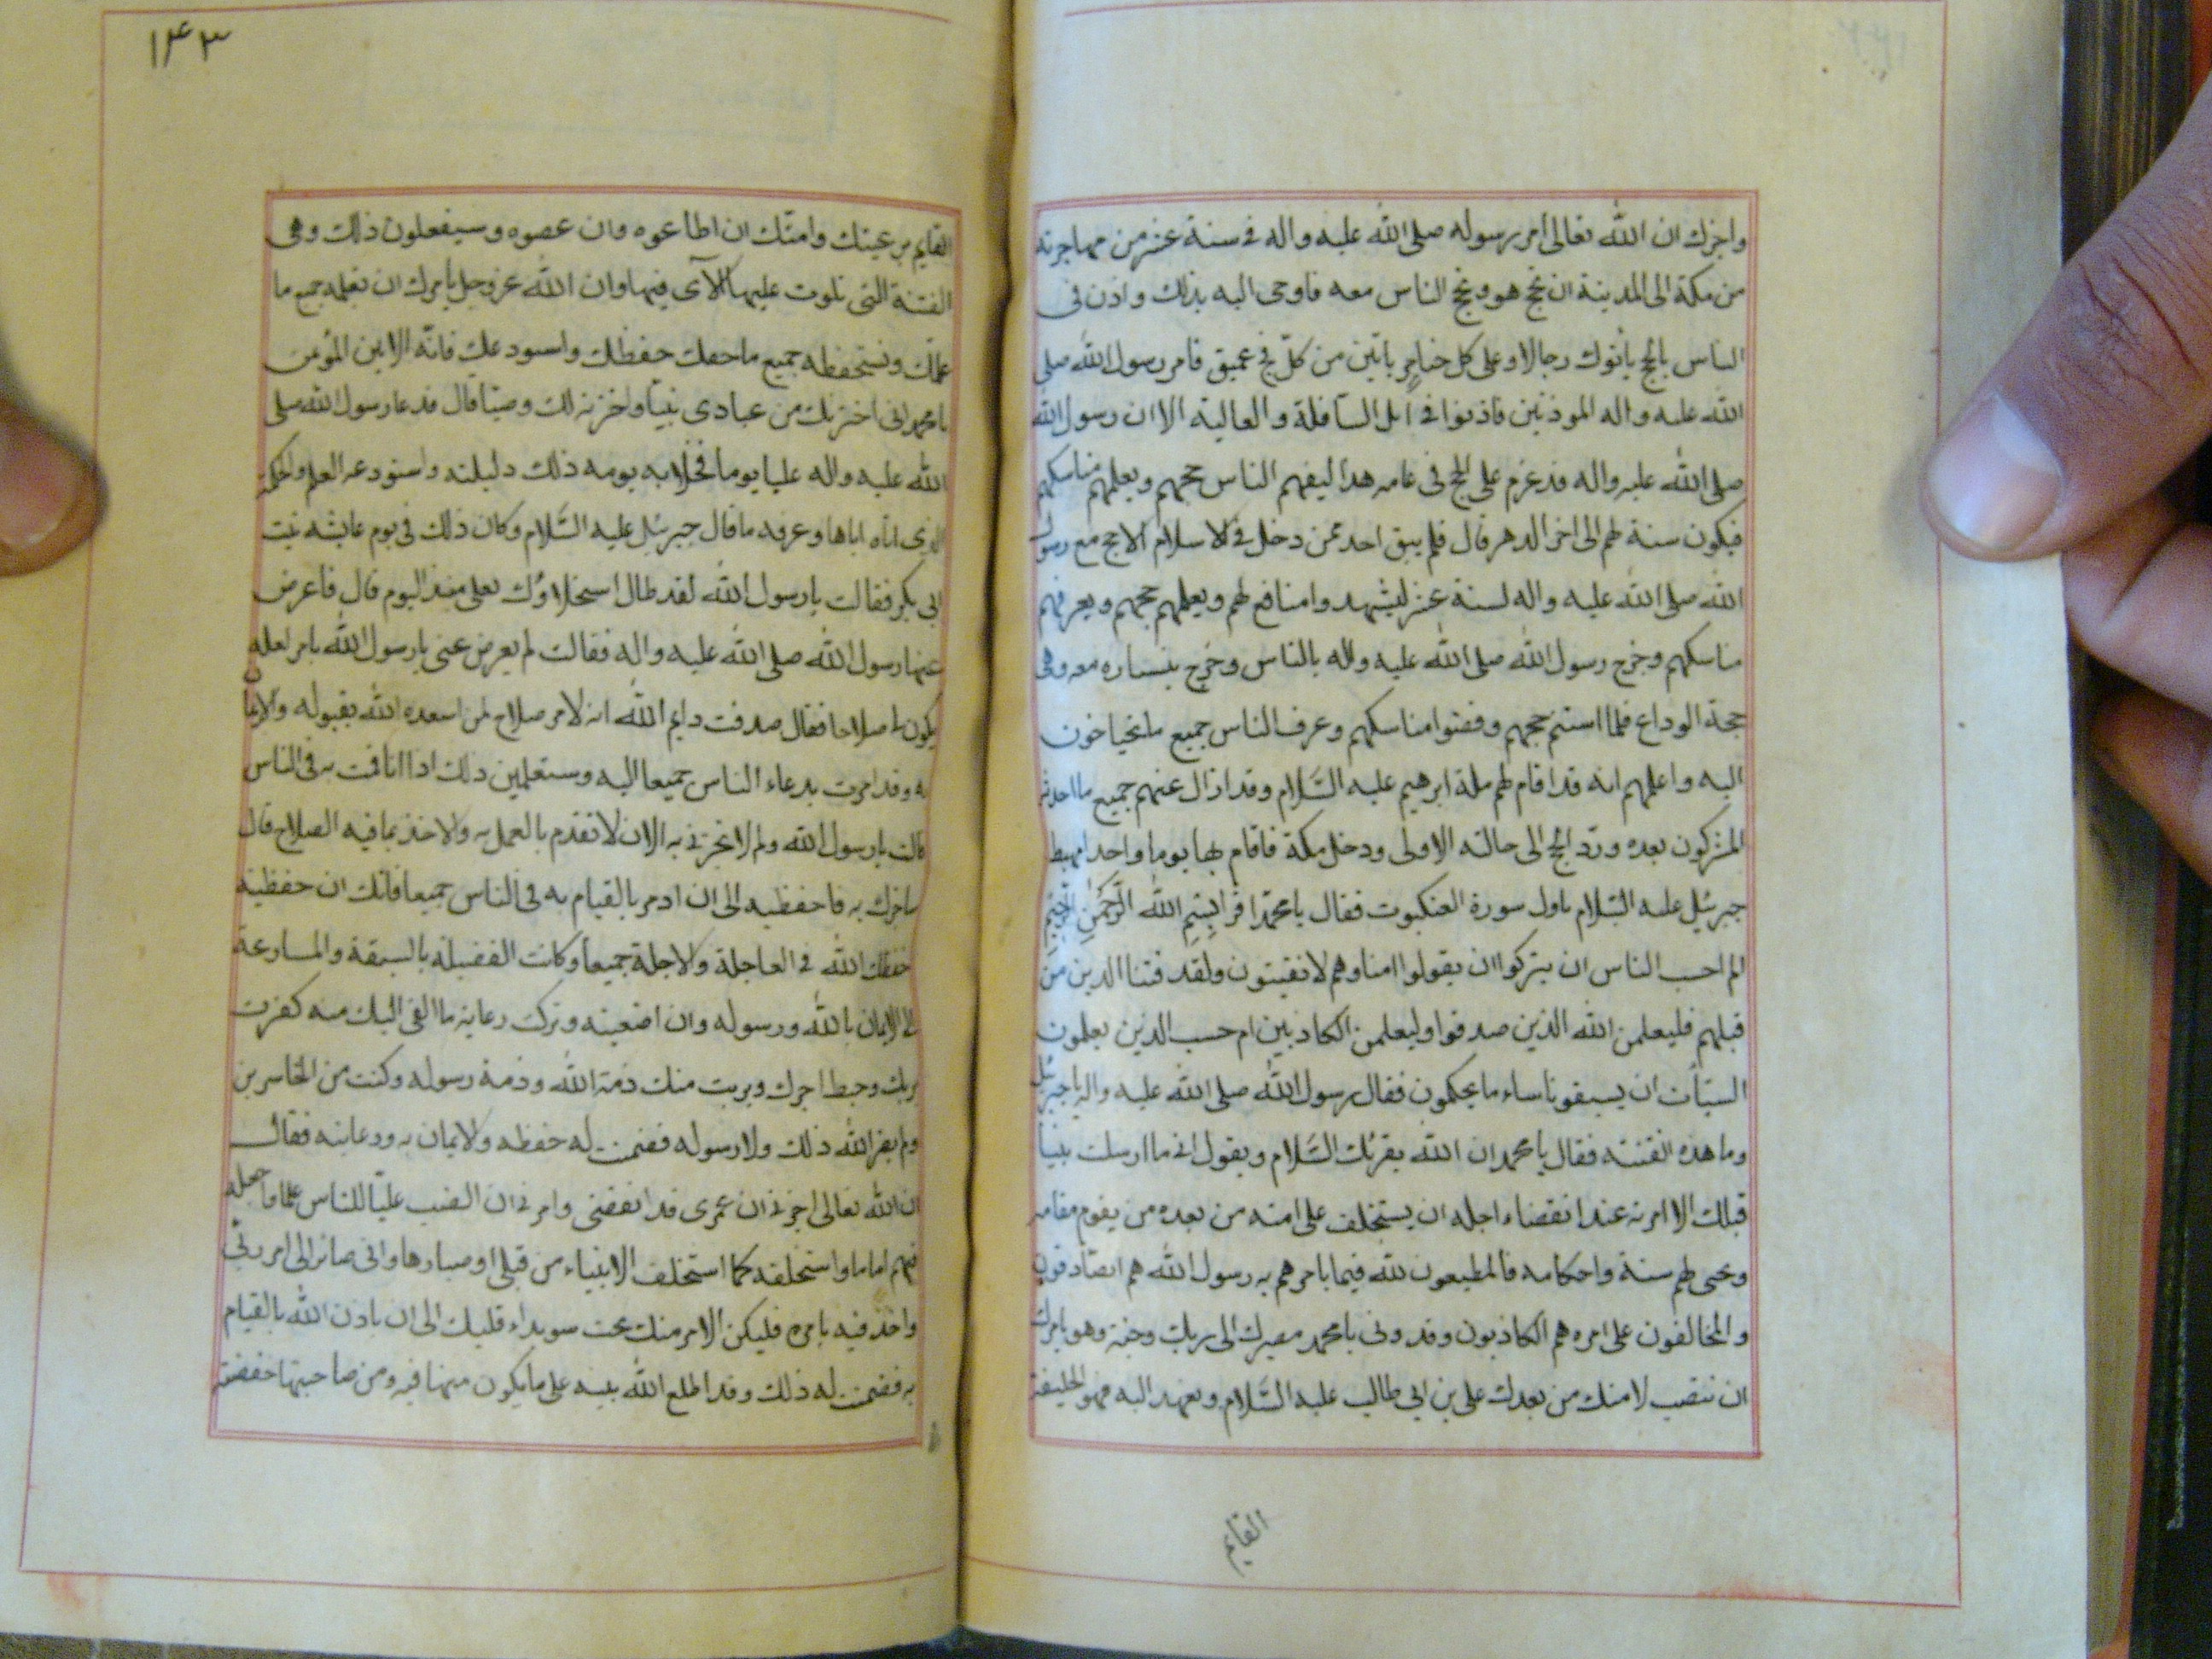 واخبرك ان الله تعالى امر رسوله صلى الله عليه واله فى سنة عشر من مهاجرته
من مكة الى المدينة ان يحج هو ويحج الناس معه فاوحى اليه بذلك واذن فى
الناس بالحج ياتوك رجالا وعلى كل ضامر ياتين من كل فج عميق فامر رسول الله صلى
الله عليه واله الموذنين فاذنوا فى اهل السافلة والعالية الا ان رسول الله
صلى الله عليه واله قد عزم على الحج فى عامه هذا ليفهم الناس حجهم ويعلمهم مناسكهم
فيكون سنة لهم الى اخر الدهر قال فلم يبق احد ممن دخل فى الاسلام الا حج مع رسول
الله صلى الله عليه واله لسنة عشر ليشهدوا منافع لهم ويعلمهم حجهم ويعرفهم
مناسكهم وخرج رسول الله صلى الله عليه واله بالناس وخرج بنساره معه وهى
حجة الوداع فلما استتم حجهم وقضوا مناسكهم وعرف الناس جميع ما يحتاجون
اليه واعلمهم انه قد اقام لهم ملة ابرهيم عليه السلام وقد ازال عنهم جميع ما احدثه
المشركون بعده ورد الحج الى حالته الاولى ودخل مكة فاقام بها يوما واحدا فهبط
جبرئيل عليه السلام باول سورة العنكبوت فقال يا محمد اقرا بِسْمِ الله الرَّحْمٰنِ الرَّحِيْمِ
الم احسب الناس ان يتركوا ان يقولوا امنا وهم لا يفتنون ولقد فتنا الذين من
قبلهم فليعلمن الله الذين صدقوا وليعلمن الكاذبين ام حسب الذين يعلمون
السيّأت ان يسبقونا ساء ما يحكمون فقال رسول الله صلى الله عليه واله يا جبرئيل
وما هذه الفتنة فقال يا محمد ان الله يقرئك السلام ويقول انى ما ارسلت نبيا
قبلك الا امرته عند انقضاء اجله ان يستخلف على امته من بعده من يقوم مقامه
ويحى لهم سنة واحكامه فالمطيعون لله فيما يامرهم به رسول الله هم الصادقون
والمخالفون على امره هم الكاذبون وقد دنى يا محمد مصيرك الى ربك وجنته وهو يامرك
ان تنصب لامتك من بعدك على بن ابى طالب عليه السلام وتعهد اليه فهو الخليفة
القايم
۱۴۳
القايم برعيتك وامتك ان اطاعوه وان عصوه وسيفعلون ذلك وهى
الفتنة التى تلوت عليها الآى فيها وان الله عز وجل يأمرك ان تعلمه جميع ما
علمك وتستحفظه جميع ما حفظك واستودعك فانه الامين المؤتمن
يا محمد انى اخترتك من عبادى نبيا واخترته لك وصيا قال فدعا رسول الله صلى
الله عليه واله عليا يوما فخلا به يومه ذلك وليلته واستودعه العلم والحكمة
التى اتاه اياها وعرفه ما قال جبرئيل عليه السلام وكان ذلك فى يوم عايشه بنت
ابى بكر فقالت يا رسول الله لقد طال استخلاؤك بعلى منذ اليوم قال فاعرض
عنها رسول الله صلى الله عليه واله فقالت لم تعرض عنى يا رسول الله بامر لعله
يكون لى صلاحا فقال صدقت وايم الله انه لامر صلاح لمن اسعده الله بقبوله والايمان
به وقد امرت بدعاء الناس جميعا اليه وستعلمين ذلك اذا انا قمت به فى الناس
قالت يا رسول الله ولم لا تخبرنى به الان لاتقدم بالعمل به والاخذ بما فيه الصلاح قال
ساخبرك به فاحفظيه الى ان اومر بالقيام به فى الناس جميعا فانك ان حفظتيه
حفظك الله فى العاجلة والاجلة جميعا وكانت الفضيلة بالسبقة والمسارعة
الى الايمان بالله ورسوله وان اضعتيه وتركت رعاية ما القى اليك منه كفرت
بربك وحبط اجرك وبريت منك ذمة الله وذمة رسوله وكنت من الخاسرين
ولم يضر الله ذلك ولا رسوله فضمنت له حفظه والايمان به ورعايته فقال
ان الله تعالى اخبرنى ان عمرى قد انقضى وامرنى ان انصب عليا للناس علما واجعله
فيهم اماما واستخلفه كما استخلف الانبياء من قبلى اوصياءها وانى صائر الى امر ربى
واخذ فيه بامره فليكن الامر منك تحت سويداء قلبك الى ان ياذن الله بالقيام
به فضمنت له ذلك وقد اطلع الله نبيه على ما يكون منها فيه ومن صاحبتها حفصة